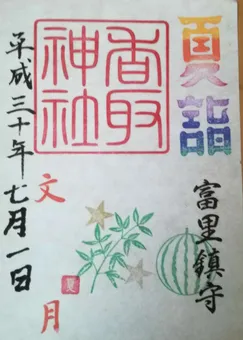 夏詣
富里鎮守
香取神社
文月
平成三十年七月一日
夏